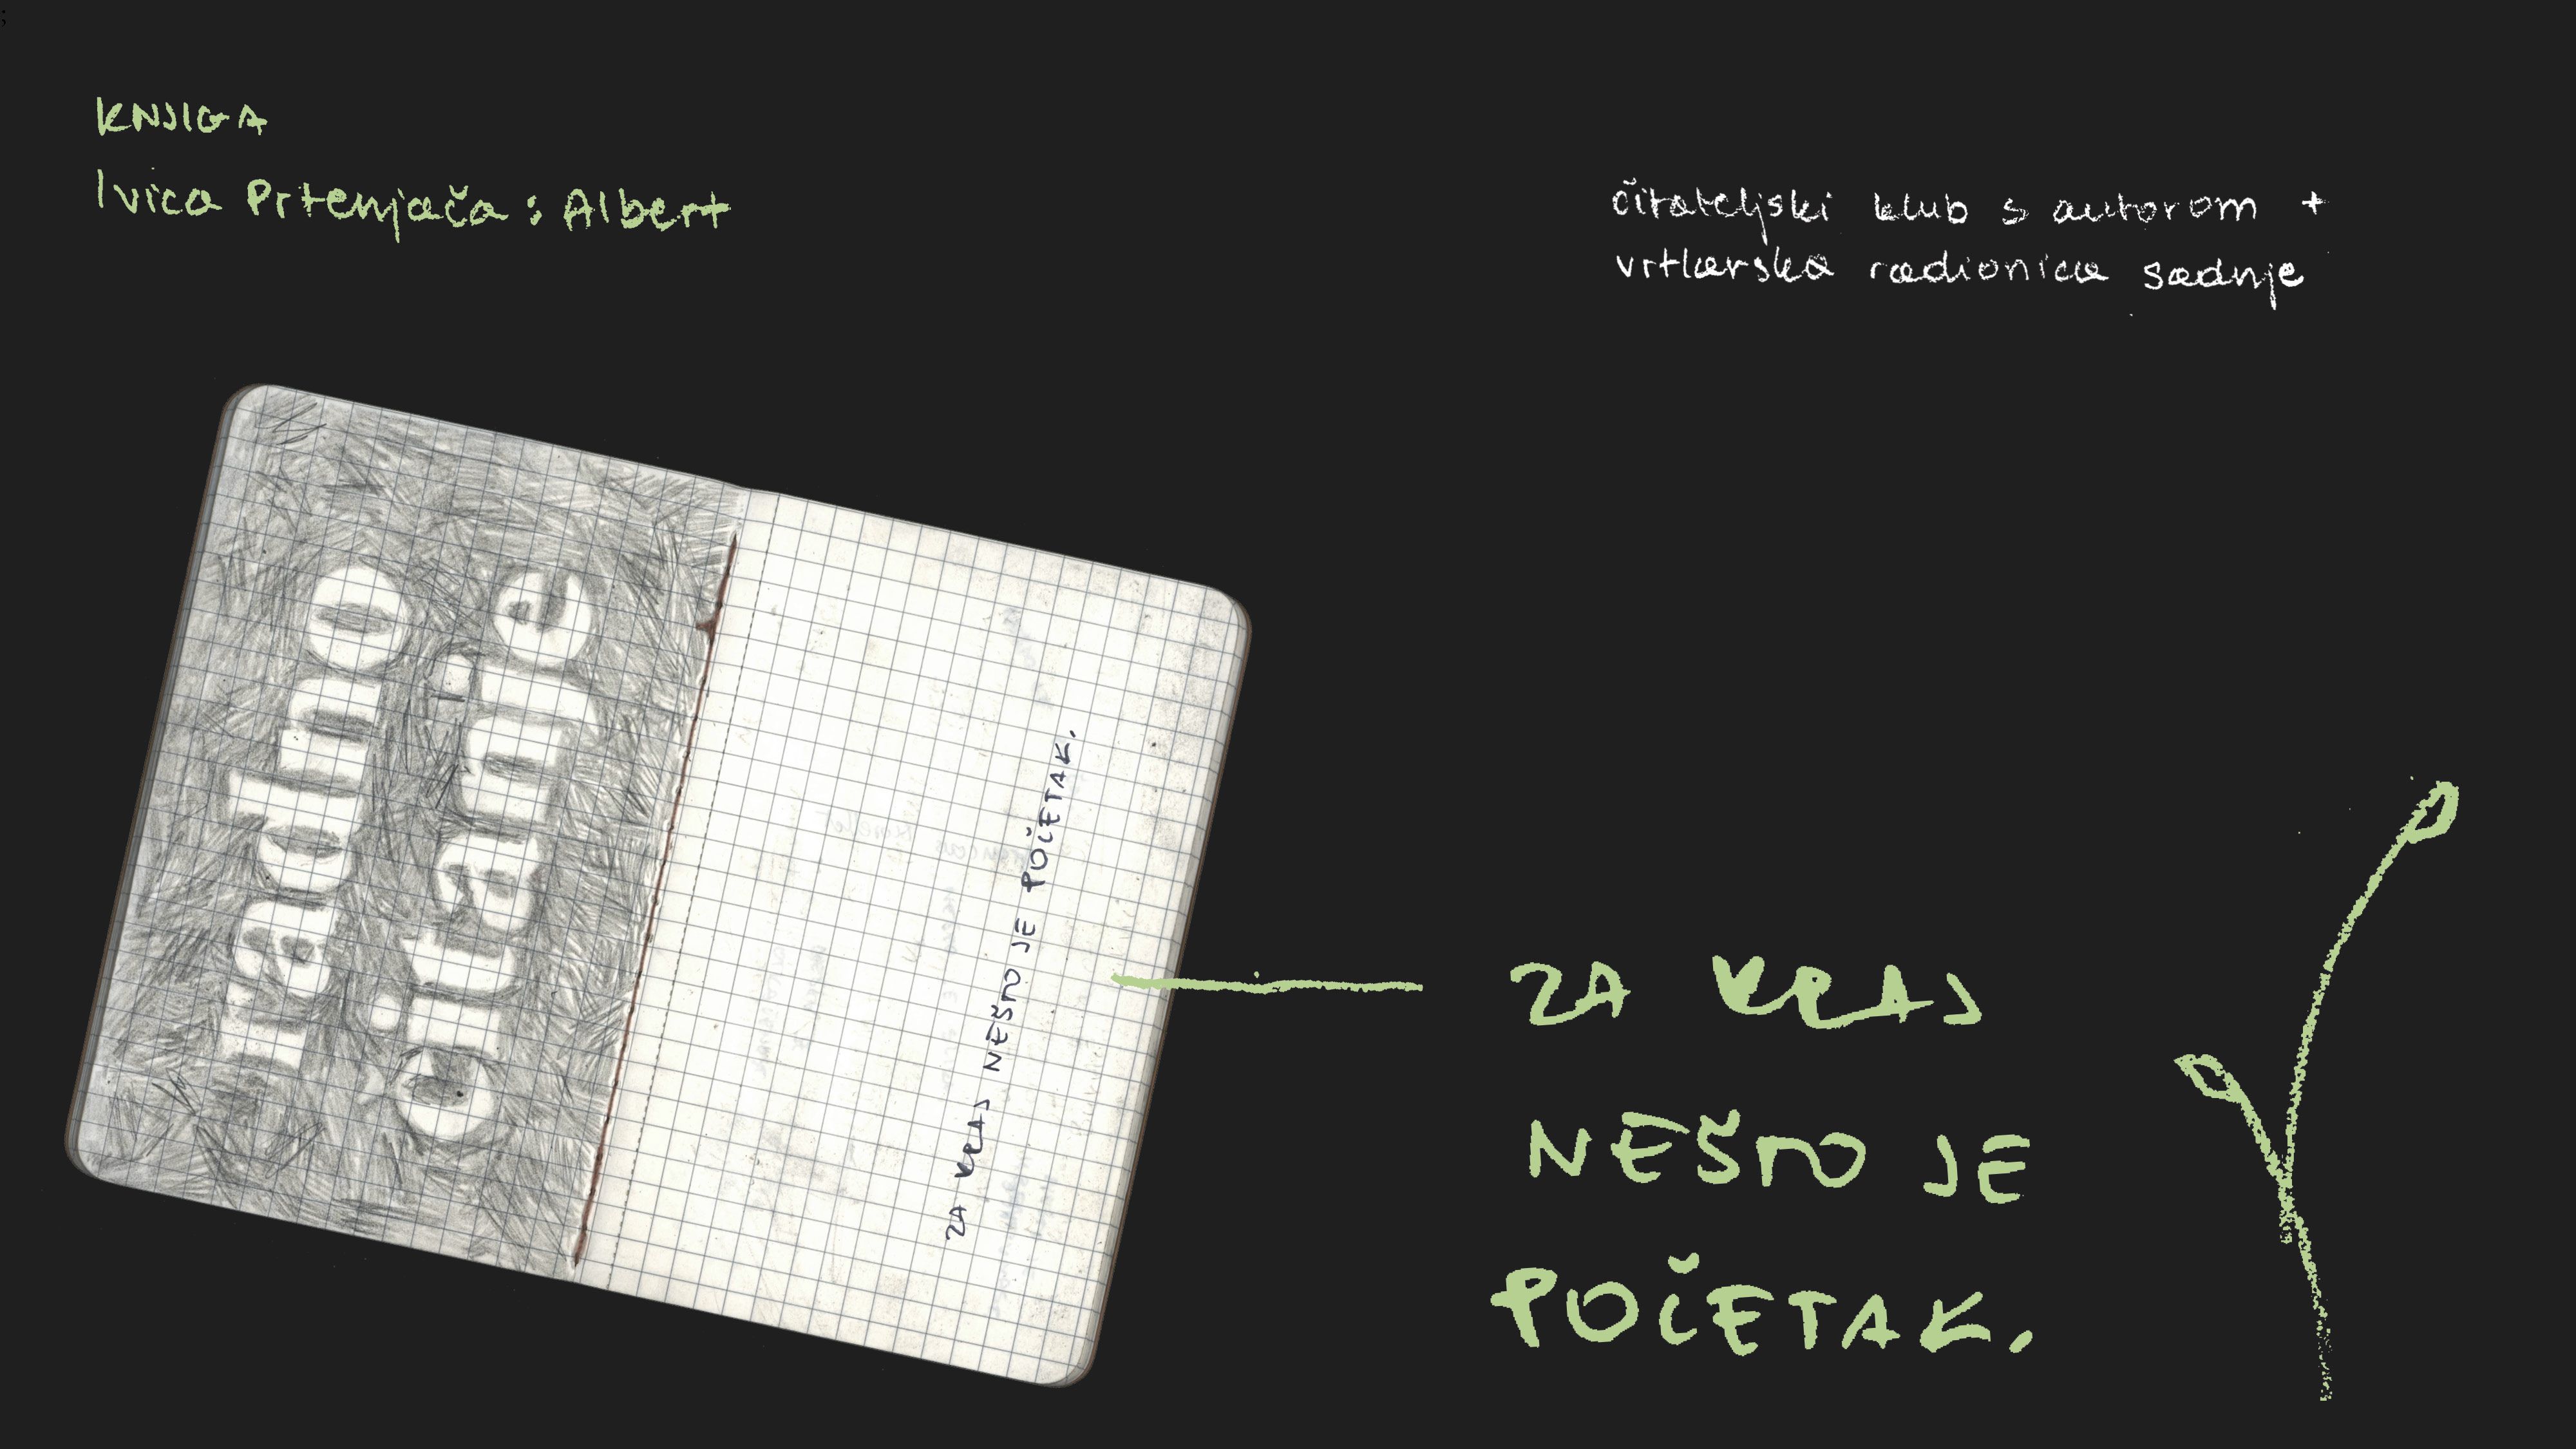 ;
KNJIGA
Ivica Prtenjača: Albert
čitateljski klub s autorom +
vrtlarska radionica sadnje
radno
čitanje
ZA KRAJ NEŠTO JE POČETAK.
ZA KRAJ
NEŠTO JE
POČETAK.